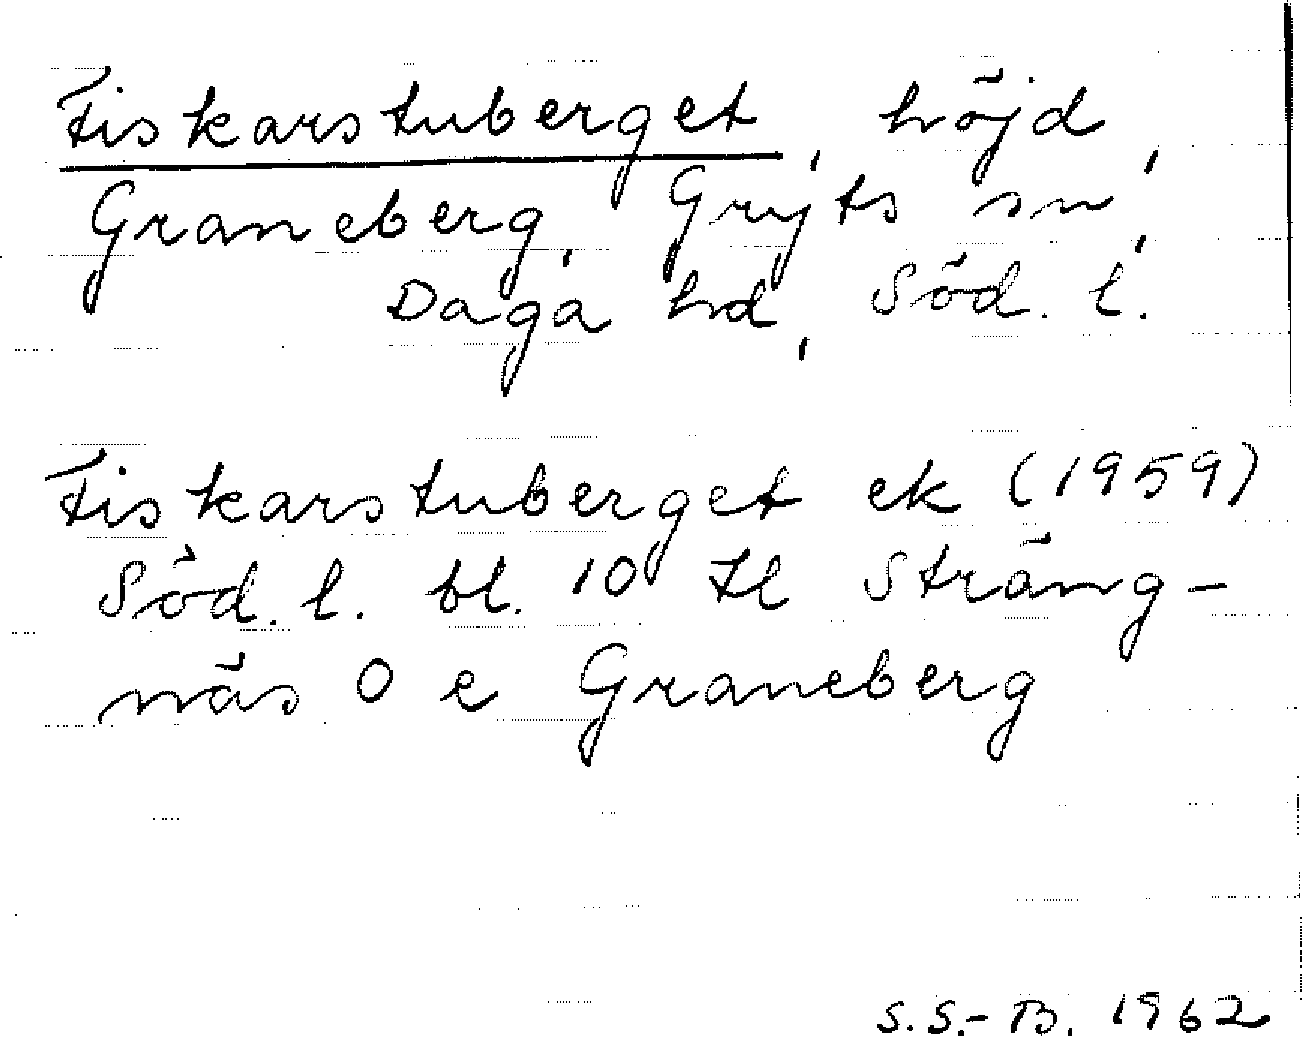 Fiskarstuberget, höjd,
Graneberg, Gryts sn,
Daga hd, Söd. l.
Fiskarstuberget ek (1959)
Söd. l. bl. 10 tl Sträng-
näs O e Graneberg
S.S.-B. 1962